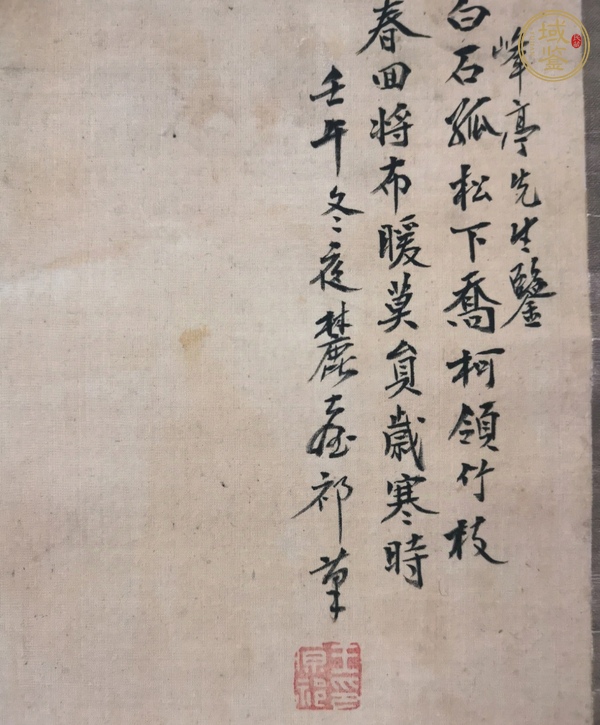 峰亭先生鑒
白石孤松下喬柯領竹枝
春回將布暖莫負歲寒時
壬午冬夜麓臺祁草
王原祁印
域鉴